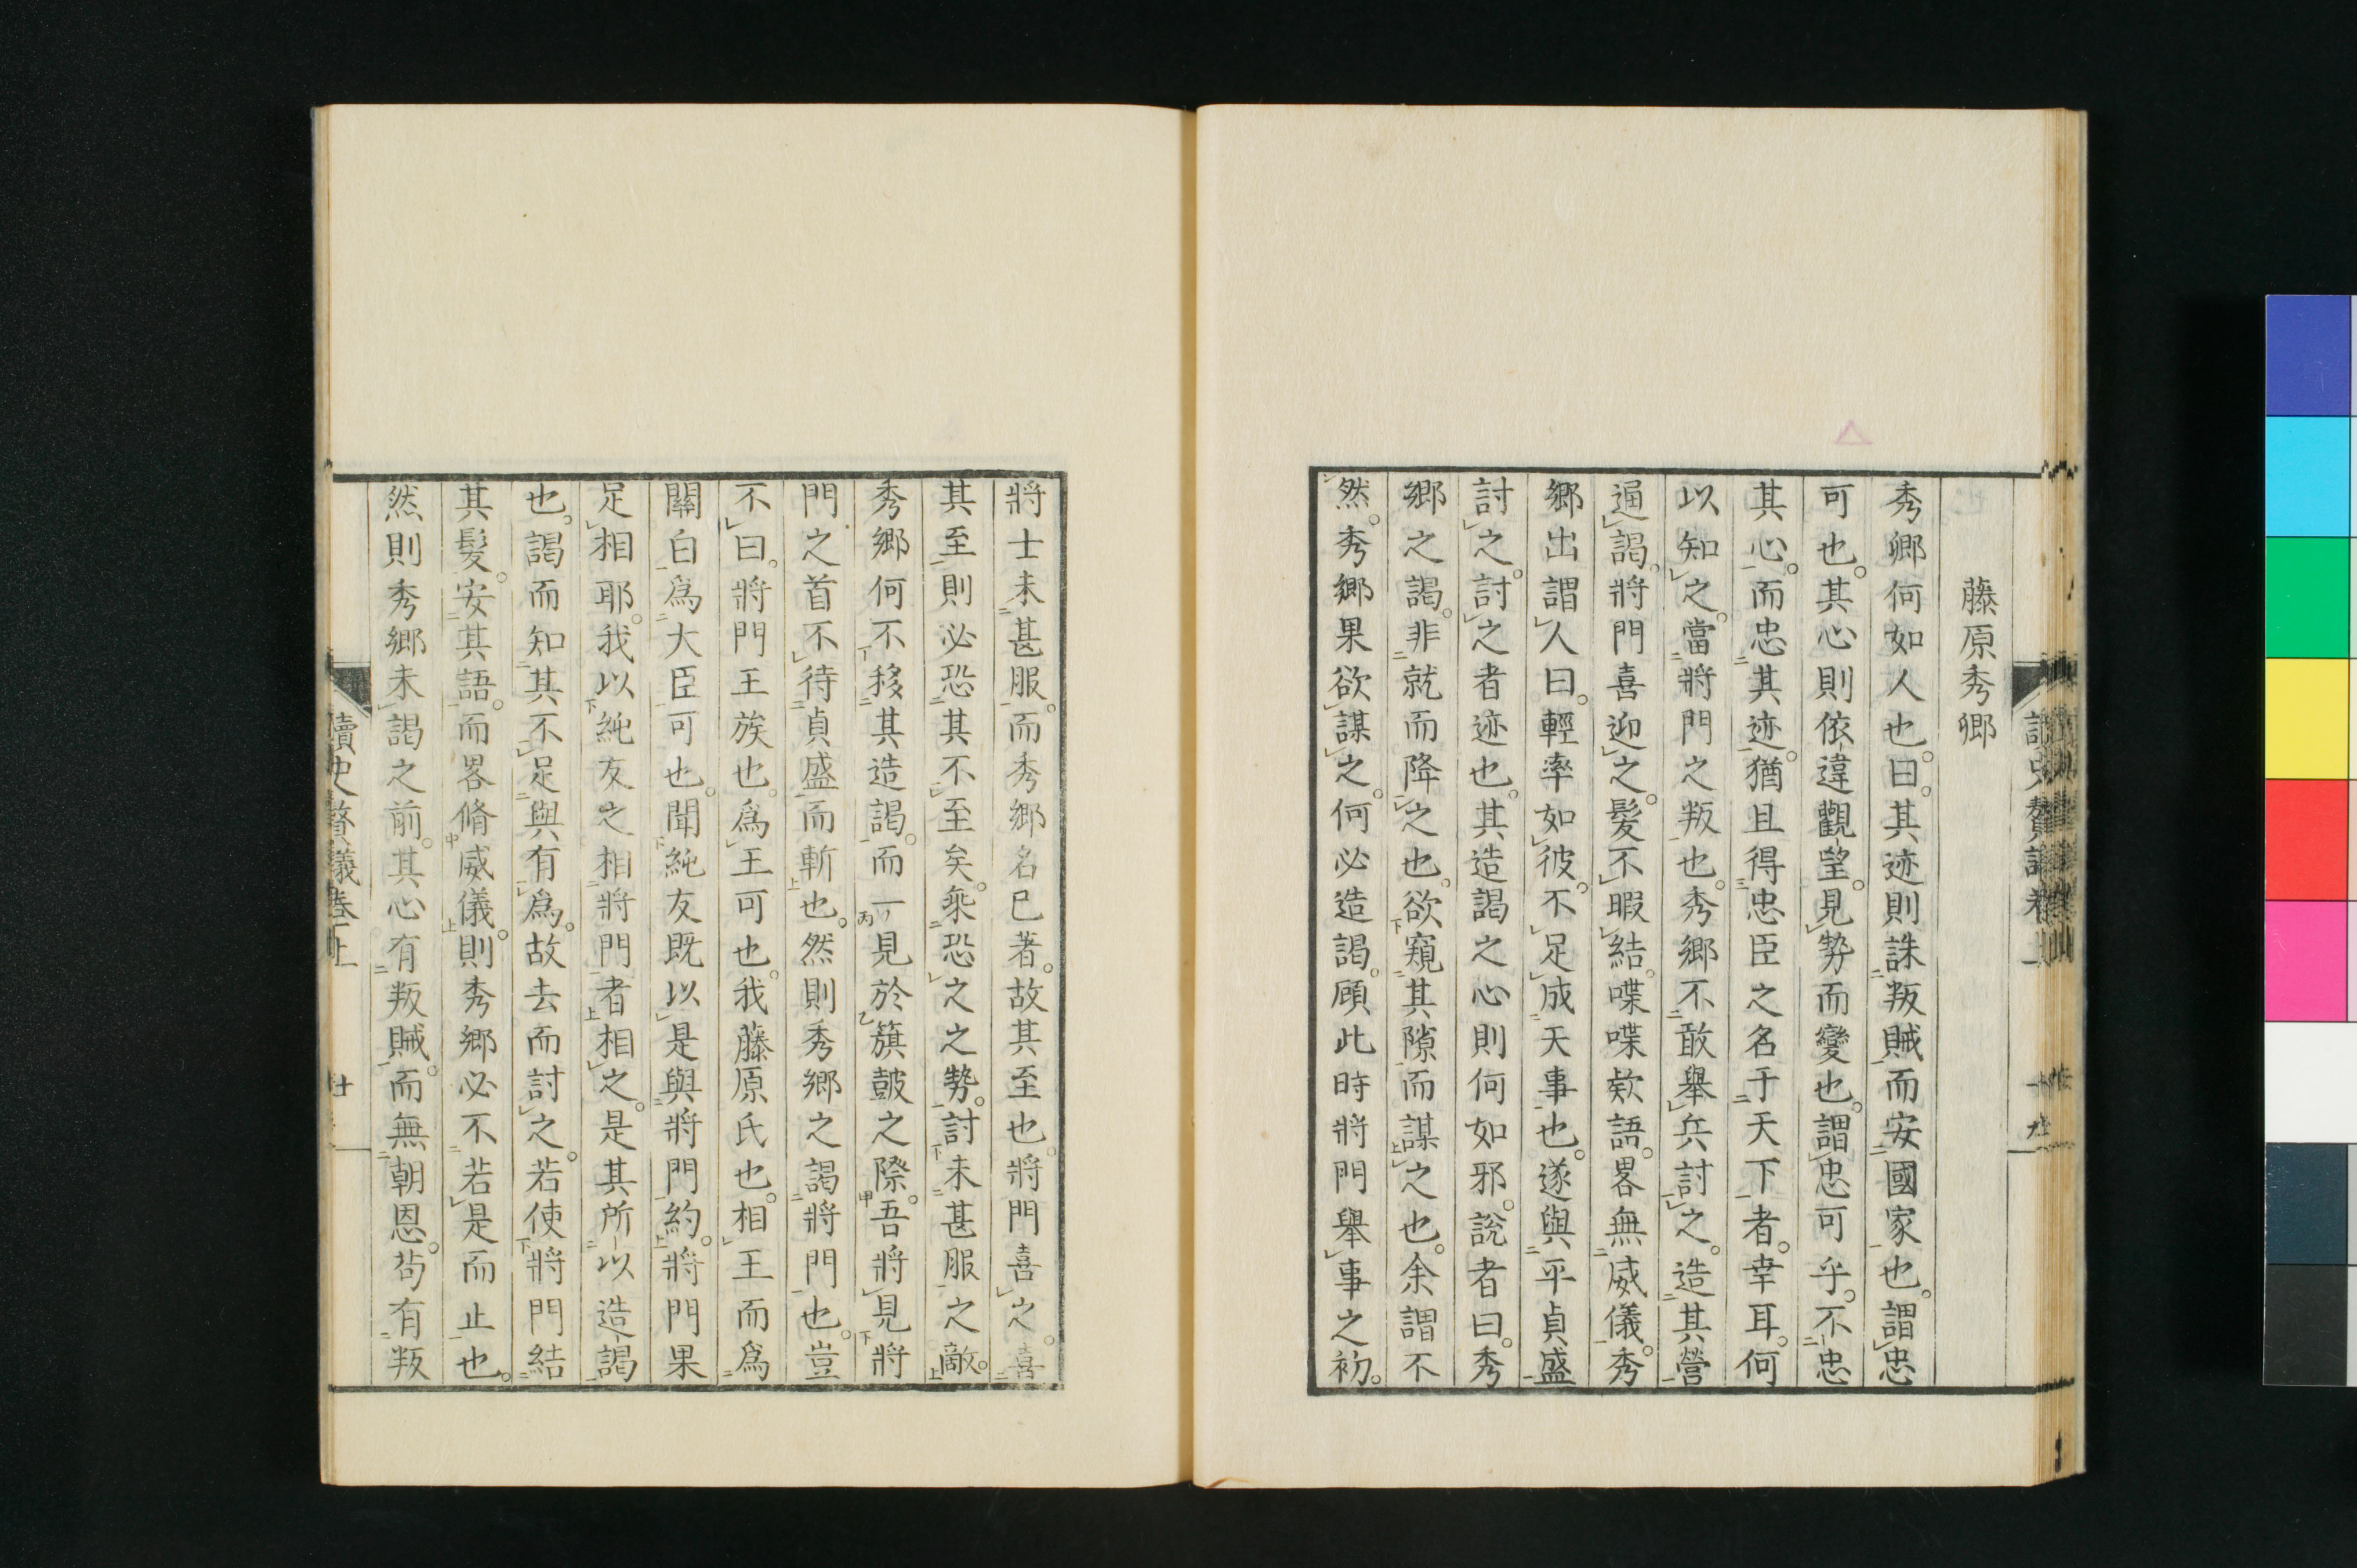 藤原秀郷
秀郷何如人也。曰。其迹則誅叛賊而安國家也。謂忠
可也。其心則依違觀望。見勢而變也。謂忠可乎。不忠
其心。而忠其迹。猶且得忠臣之名于天下者。幸耳。何
以知之。當將門之叛也。秀郷不敢舉兵討之。造其營
通謁。將門喜迎之。髮不暇結。喋喋欵語。畧無威儀。秀
郷出謂人曰。輕率如彼。不足成天事也。遂與平貞盛
討之。討之者迹也。其造謁之心則何如邪。說者曰。秀
郷之謁。非就而降之也。欲窺其隙而謀之也。余謂不
然。秀郷果欲謀之。何必造謁。頋此時將門舉事之初。
將士未甚服。而秀郷名已著。故其至也。將門喜之。喜
其至則必恐其不至矣。乘恐之之勢。討未甚服之敵。
秀郷何不移其造謁。而一見於旗鼓之際。吾將見將
門之首不待貞盛而斬也。然則秀郷之謁將門也。豈
不曰。將門王族也。爲王可也。我藤原氏也。相王而爲
關白爲大臣可也。聞純友既以是與將門約。將門果
足相耶。我以純友之相將門者相之。是其所以造謁
也。謁而知其不足與有爲。故去而討之。若使將門結
其髮。安其語。而畧脩威儀。則秀郷必不若是而止也。
然則秀郷未謁之前。其心有叛賊。而無朝恩。苟有叛
讀史贅議卷上